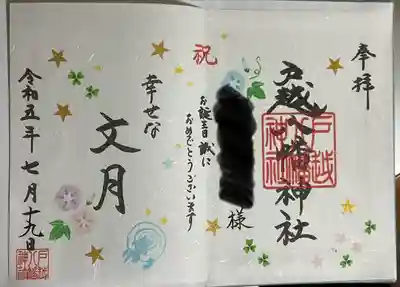 奉拝
戸越八幡神社
様
祝
お誕生日誠に
おめでとうございます
幸せな
文月
令和五年七月十九日
戸越
八幡
神社